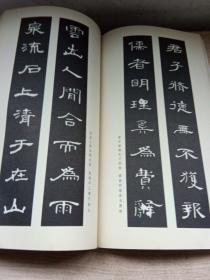 君子脩德無不獲報
儒者明理奚為費辭
雲出人間合而為雨
泉流石上清于在山